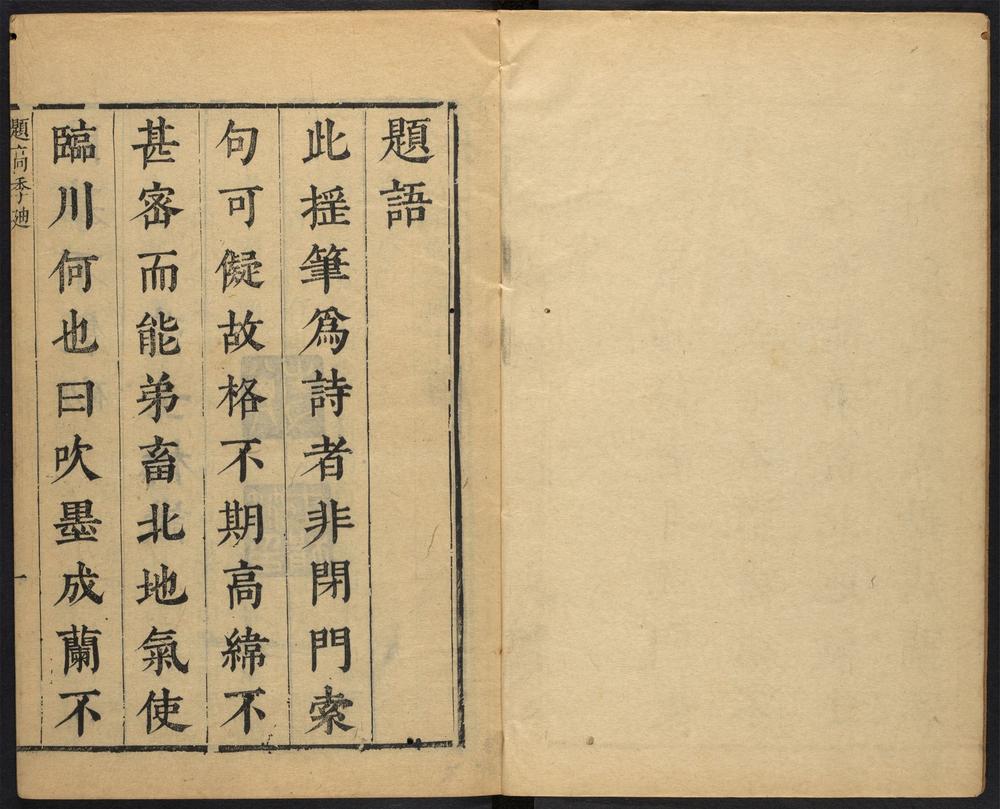 題語
此揺筆爲詩者非閉門索
句可儗故格不期高緯不
甚宻而能弟畜北地氣使
臨川何也曰吹墨成蘭不
題高季廸
一